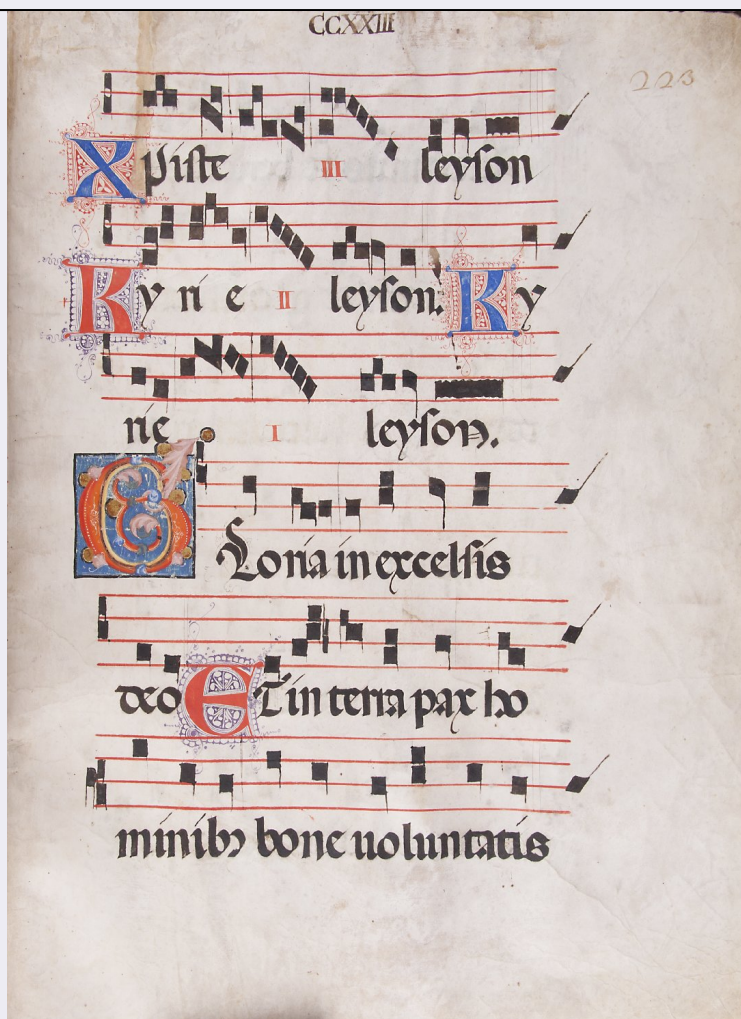 CCXXIII
223
Xpiste III leyson
Ky ri e II leyson. Ky
rie I leyson.
Gloria in excelsis
deo Et in terra pax ho
minibꝫ bone uoluntatis